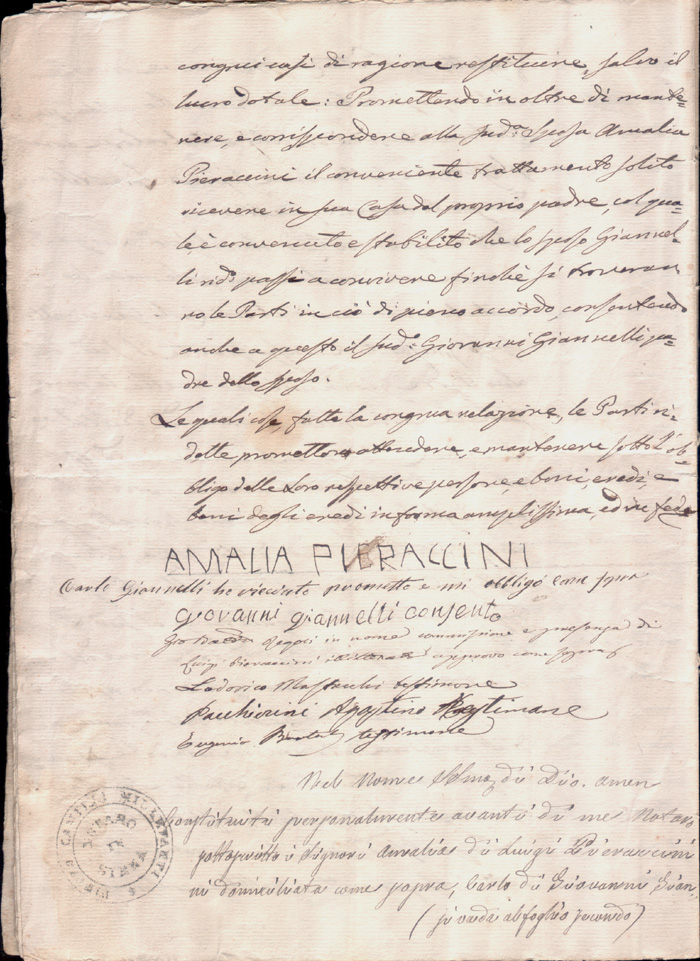 congrui casi di ragione restituire, salvo il
lucro dotale: Promettendo in oltre di mante=
nere, e corrispondere alla sud.ª Sposa Amalia
Pieraccini il conveniente trattamento solito
ricevere in sua Casa dal proprio padre, col qua=
le, è convenuto e stabilito che lo sposo Giannel=
li sud.º passi a convivere finchè si troveran
no le Parti in ciò di pieno accordo, consentendo
anche a questo il sud.º Giovanni Giannelli pa=
dre dello sposo.
Le quali cose, fatta la congrua relazione, le Parti ri=
dette promettono attendere, e mantenere sotto l'ob=
bligo delle Loro respettive persone, e beni, eredi, e
beni degli eredi in forma amplissima, ed in fede
AMALIA PIERACCINI
Carlo Giannelli ho ricevuto prometto e mi obbligo come sopra
giovanni giannelli consento
in nome commissione e presenza di
Luigi Pieraccini approvo come sopra
Lodovico testimone
Pacchierini Agostino Testimone
Eugenio testimone
Nel Nome SSmo di Dio. amen
Constituiti personalmente avanti di me Notaro
sottoscritto i Signori Amalia di Luigi Pieraccini
ni domiciliata come sopra, Carlo di Giovanni Gian,
(si veda al foglio secondo)
CAMILLO
NOTARO
IN
SIENA